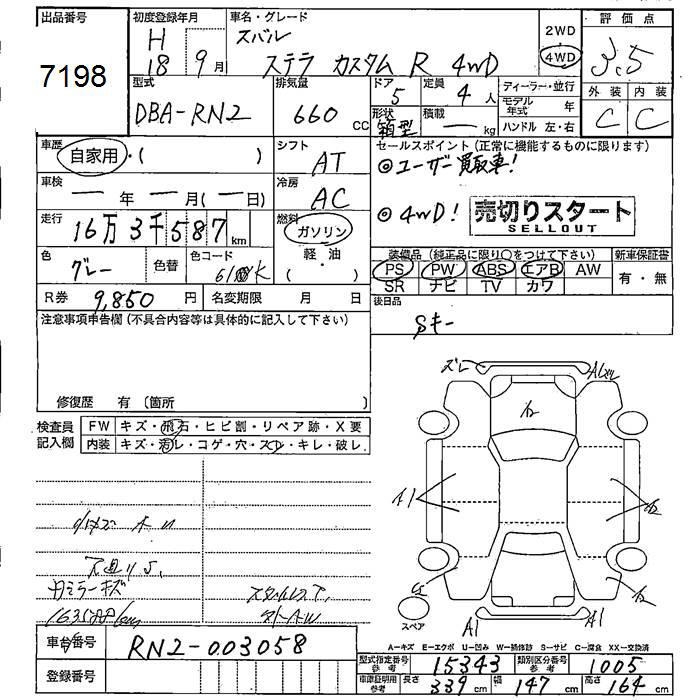 出品番号
7198
初度登録年月
H
18 9月
車名・グレード
スバル
ステラ カスタム R 4WD
2WD
4WD
評価点
3.5
外装 内装
C C
型式
DBA-RN2
排気量
660 CC
ドア
5
形状
箱型
定員
4人
積載
ー kg
ディーラー・並行
モデル年式 年
ハンドル 左・右
車歴
自家用・( )
シフト
AT
セールスポイント (正常に機能するものに限ります)
◎ユーザー買取車!
◎4WD!
売切りスタート
SELLOUT
車検
ー年 ー月(ー日)
冷房
AC
走行
16万3千587km
燃料
ガソリン
軽・油
( )
色
グレー
色替
色コード
61K
装備品 (純正品に限り○をつけて下さい)
PS PW ABS エアB AW
SR ナビ TV カワ
新車保証書
有・無
R券 9,850円
名変期限 月 日
後日品
Sキー
注意事項申告欄 (不具合内容等は具体的に記入して下さい)
修復歴 有 〔箇所
検査員記入欄
FW キズ・飛石・ヒビ割・リペア跡・X要
内装 キズ・汚レ・コゲ・穴・スレ・キレ・破レ
ズレ
A1
A1
A1
A1
スペア
車台番号
RN2-003058
登録番号
A-キズ E-エクボ U-凹み W-補修跡 S-サビ C-腐食 XX-交換済
型式指定番号 参考 15343
類別区分番号 参考 1005
車庫証明用 参考 長さ 339cm 幅 147cm 高さ 164cm